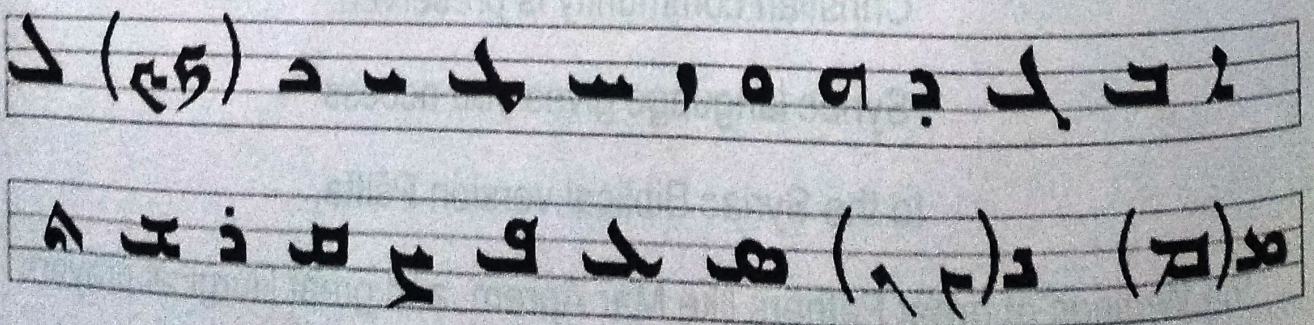 ܐ ܒ ܓ ܕ ܗ ܘ ܙ ܚ ܛ ܝ ܟ (ܟ ܟ) ܠ
ܡ (ܡ) ܢ (ܢ ܢ) ܣ ܥ ܦ ܨ ܩ ܪ ܫ ܬ